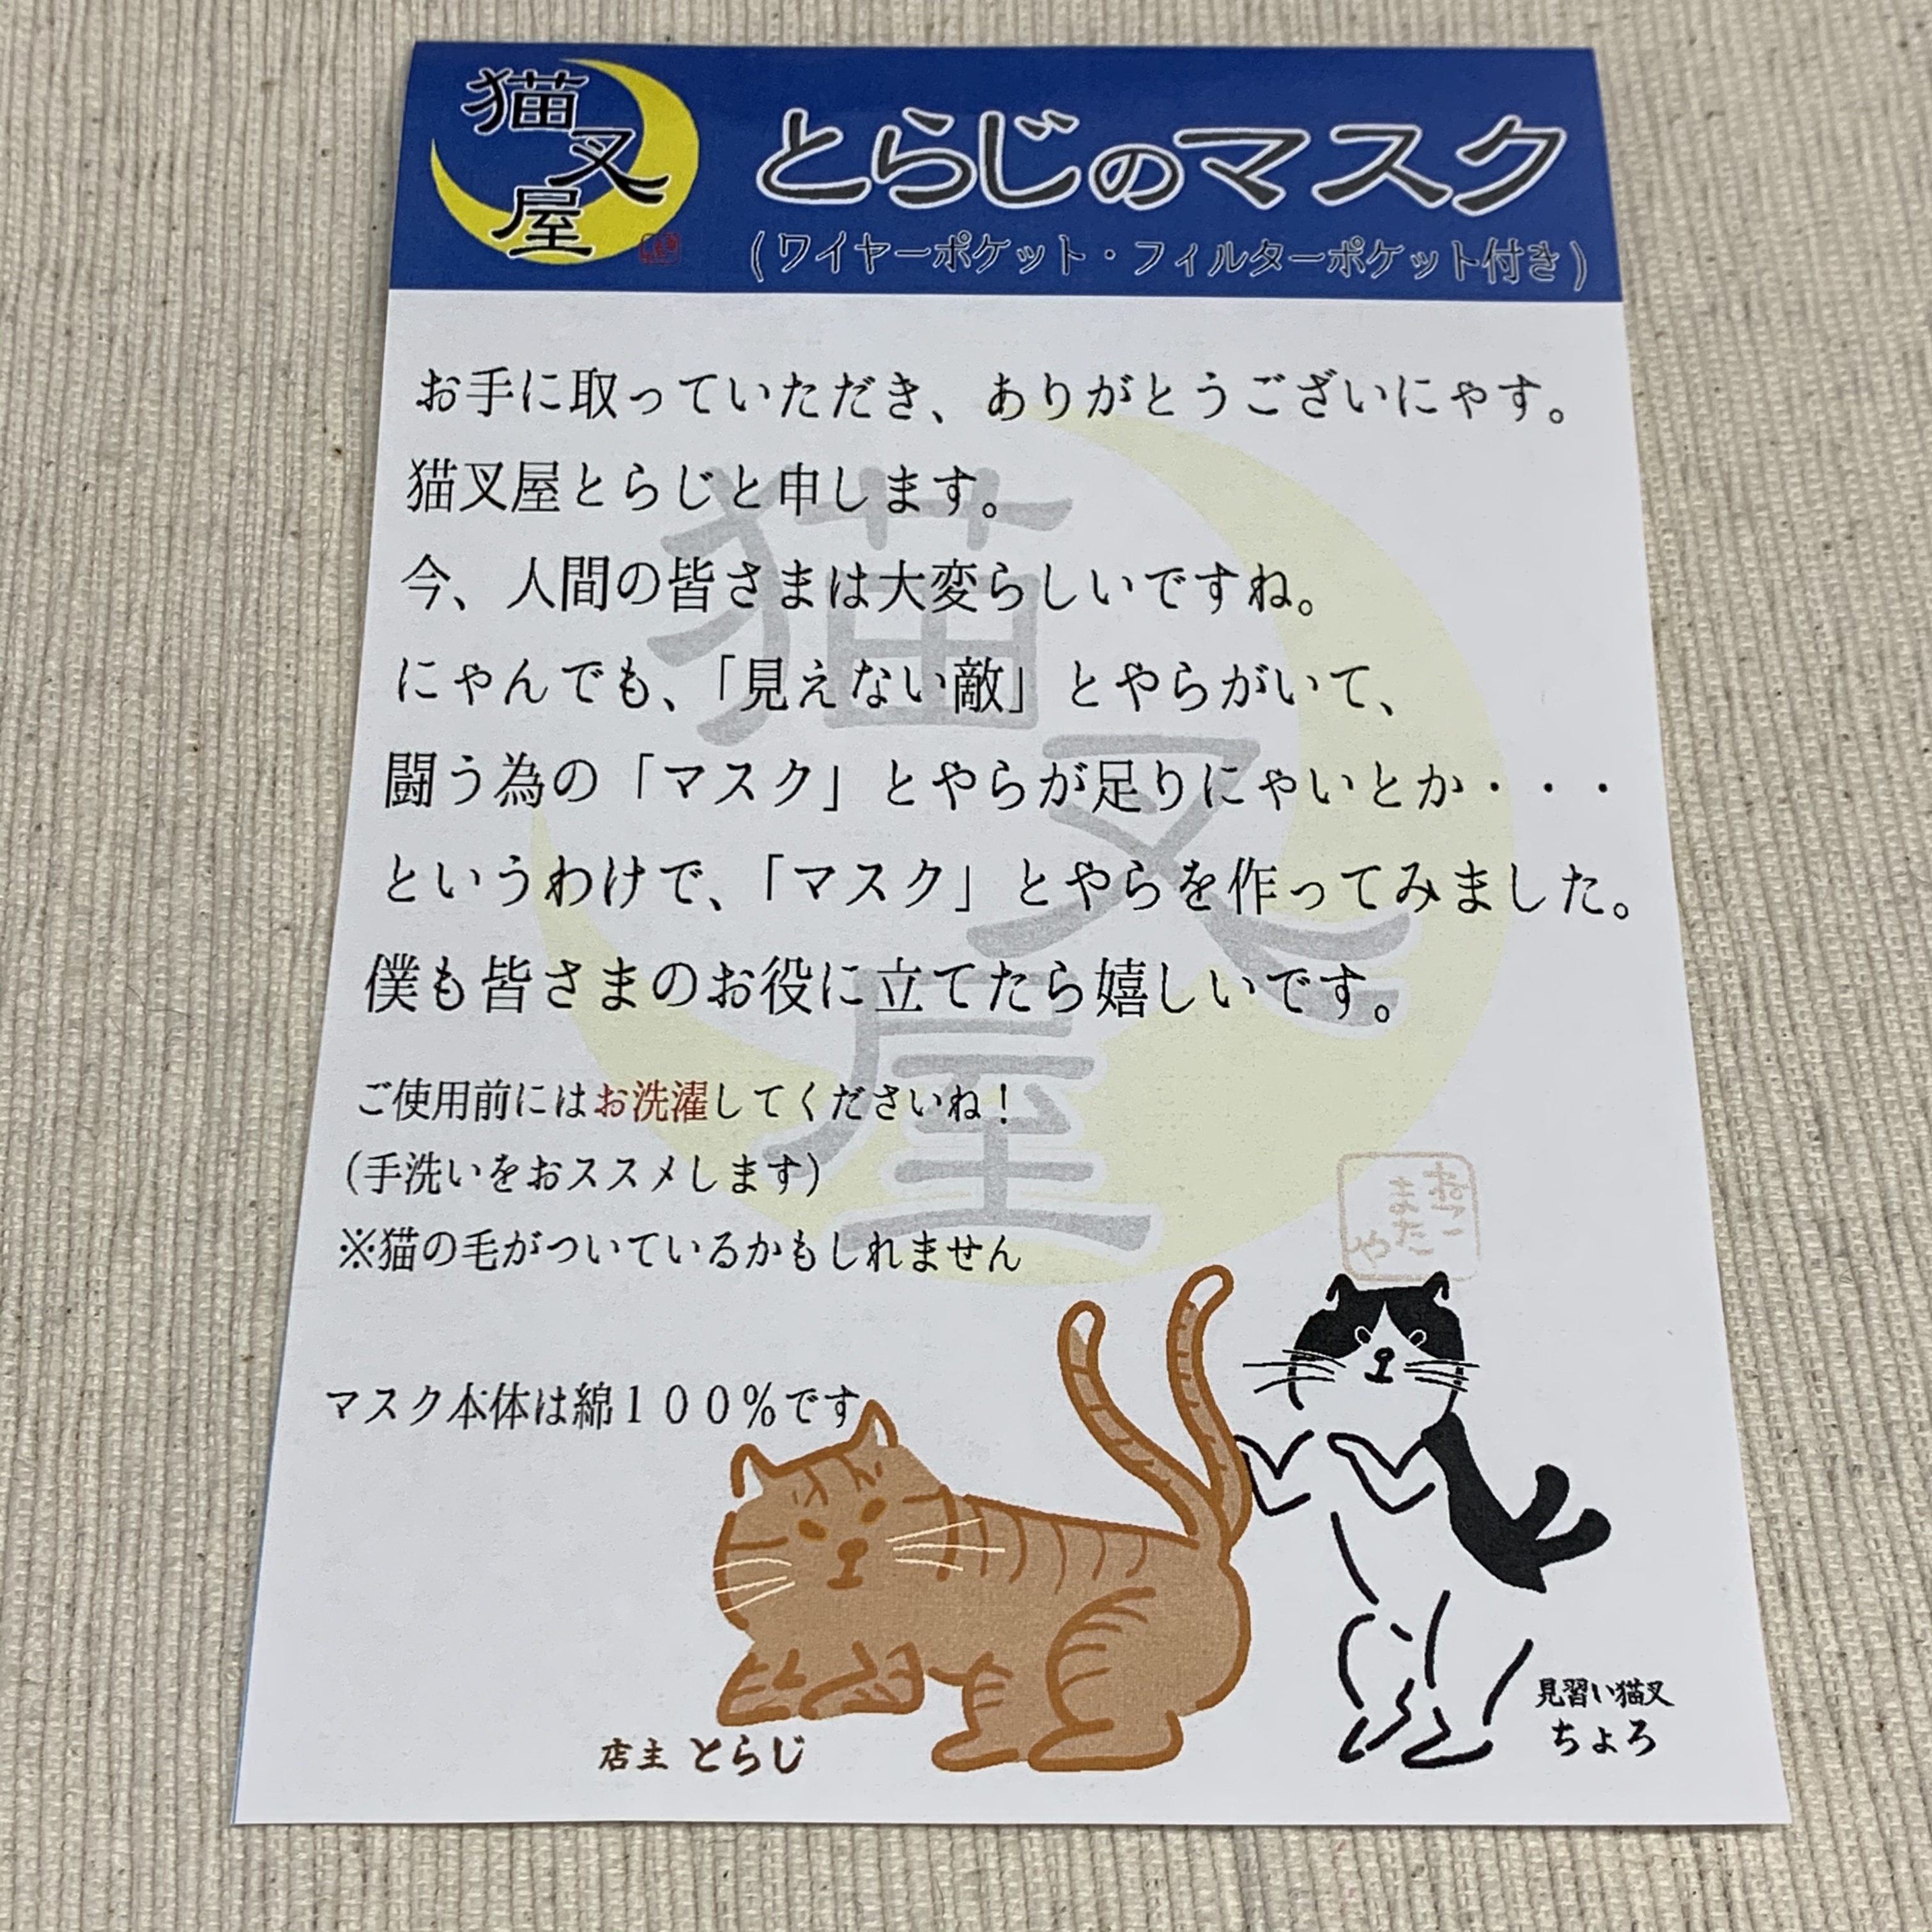 猫叉屋
とらじのマスク
(ワイヤーポケット・フィルターポケット付き)
お手に取っていただき、ありがとうございにゃす。
猫叉屋とらじと申します。
今、人間の皆さまは大変らしいですね。
にゃんでも、「見えない敵」とやらがいて、
闘う為の「マスク」とやらが足りにゃいとか・・・
というわけで、「マスク」とやらを作ってみました。
僕も皆さまのお役に立てたら嬉しいです。
ご使用前にはお洗濯してくださいね！
(手洗いをおススメします)
※猫の毛がついているかもしれません
マスク本体は綿１００％です
猫叉屋
ねこ
また
や
店主 とらじ
見習い猫叉
ちょろ